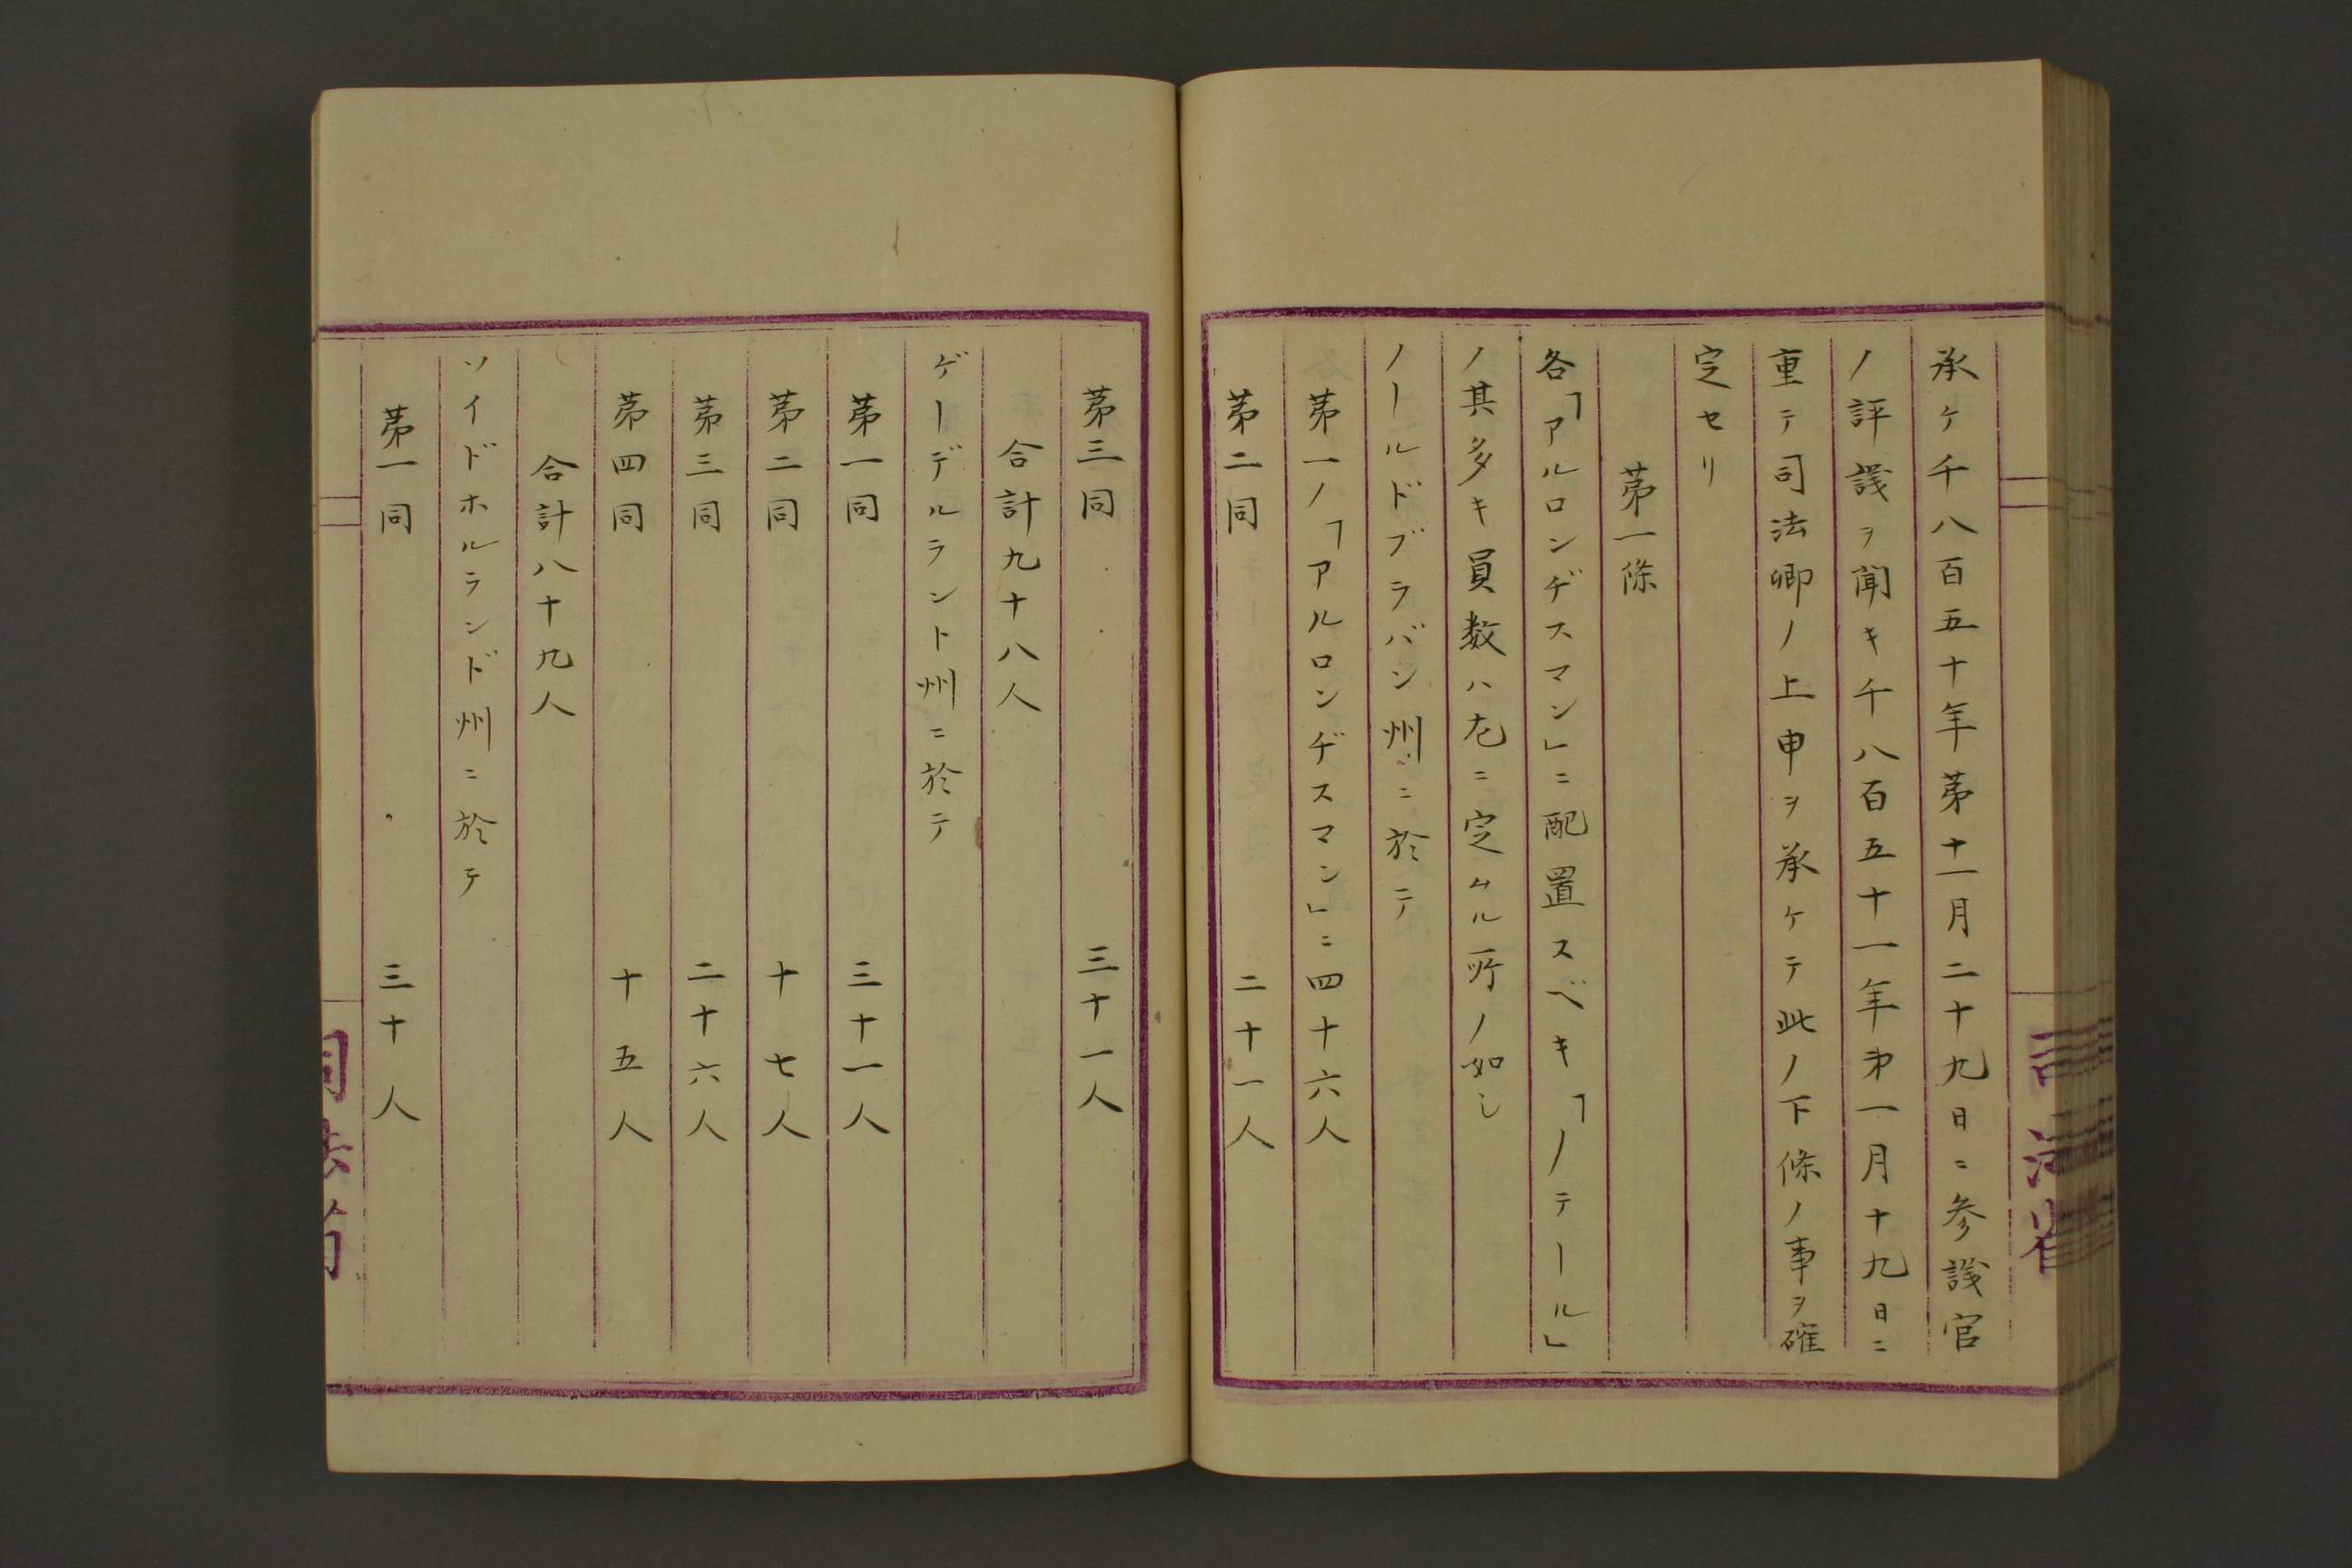 承ケ千八百五十年第十一月二十九日ニ参議官
ノ評議ヲ聞キ千八百五十一年第一月十九日ニ
重テ司法卿ノ上申ヲ承ケテ此ノ下條ノ事ヲ確
定セリ
第一條
各「アルロンヂスマン」ニ配置スベキ「ノテール」
ノ其多キ員数ハ左ニ定ムル所ノ如シ
ノールドブラバン州ニ於テ
第一ノ「アルロンヂスマン」ニ四十六人
第二同 二十一人
第三同 三十一人
合計九十八人
ゲーデルラント州ニ於テ
第一同 三十一人
第二同 十七人
第三同 二十六人
第四同 十五人
合計八十九人
ソイドホルランド州ニ於テ
第一同 三十人
司法省